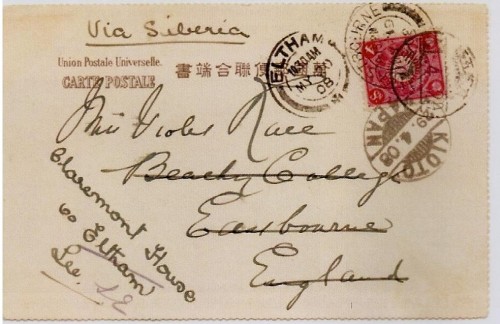 Via Siberia
Union Postale Universelle.
CARTE POSTALE
書端合聯便郵國
ELTHAM
10.30AM
MY
08
BOURNE
KIOTO
4.08
JAPAN
Miss Violet
Beachy College
Eastbourne
England
Claremont House
60 Eltham
Lee. S.E